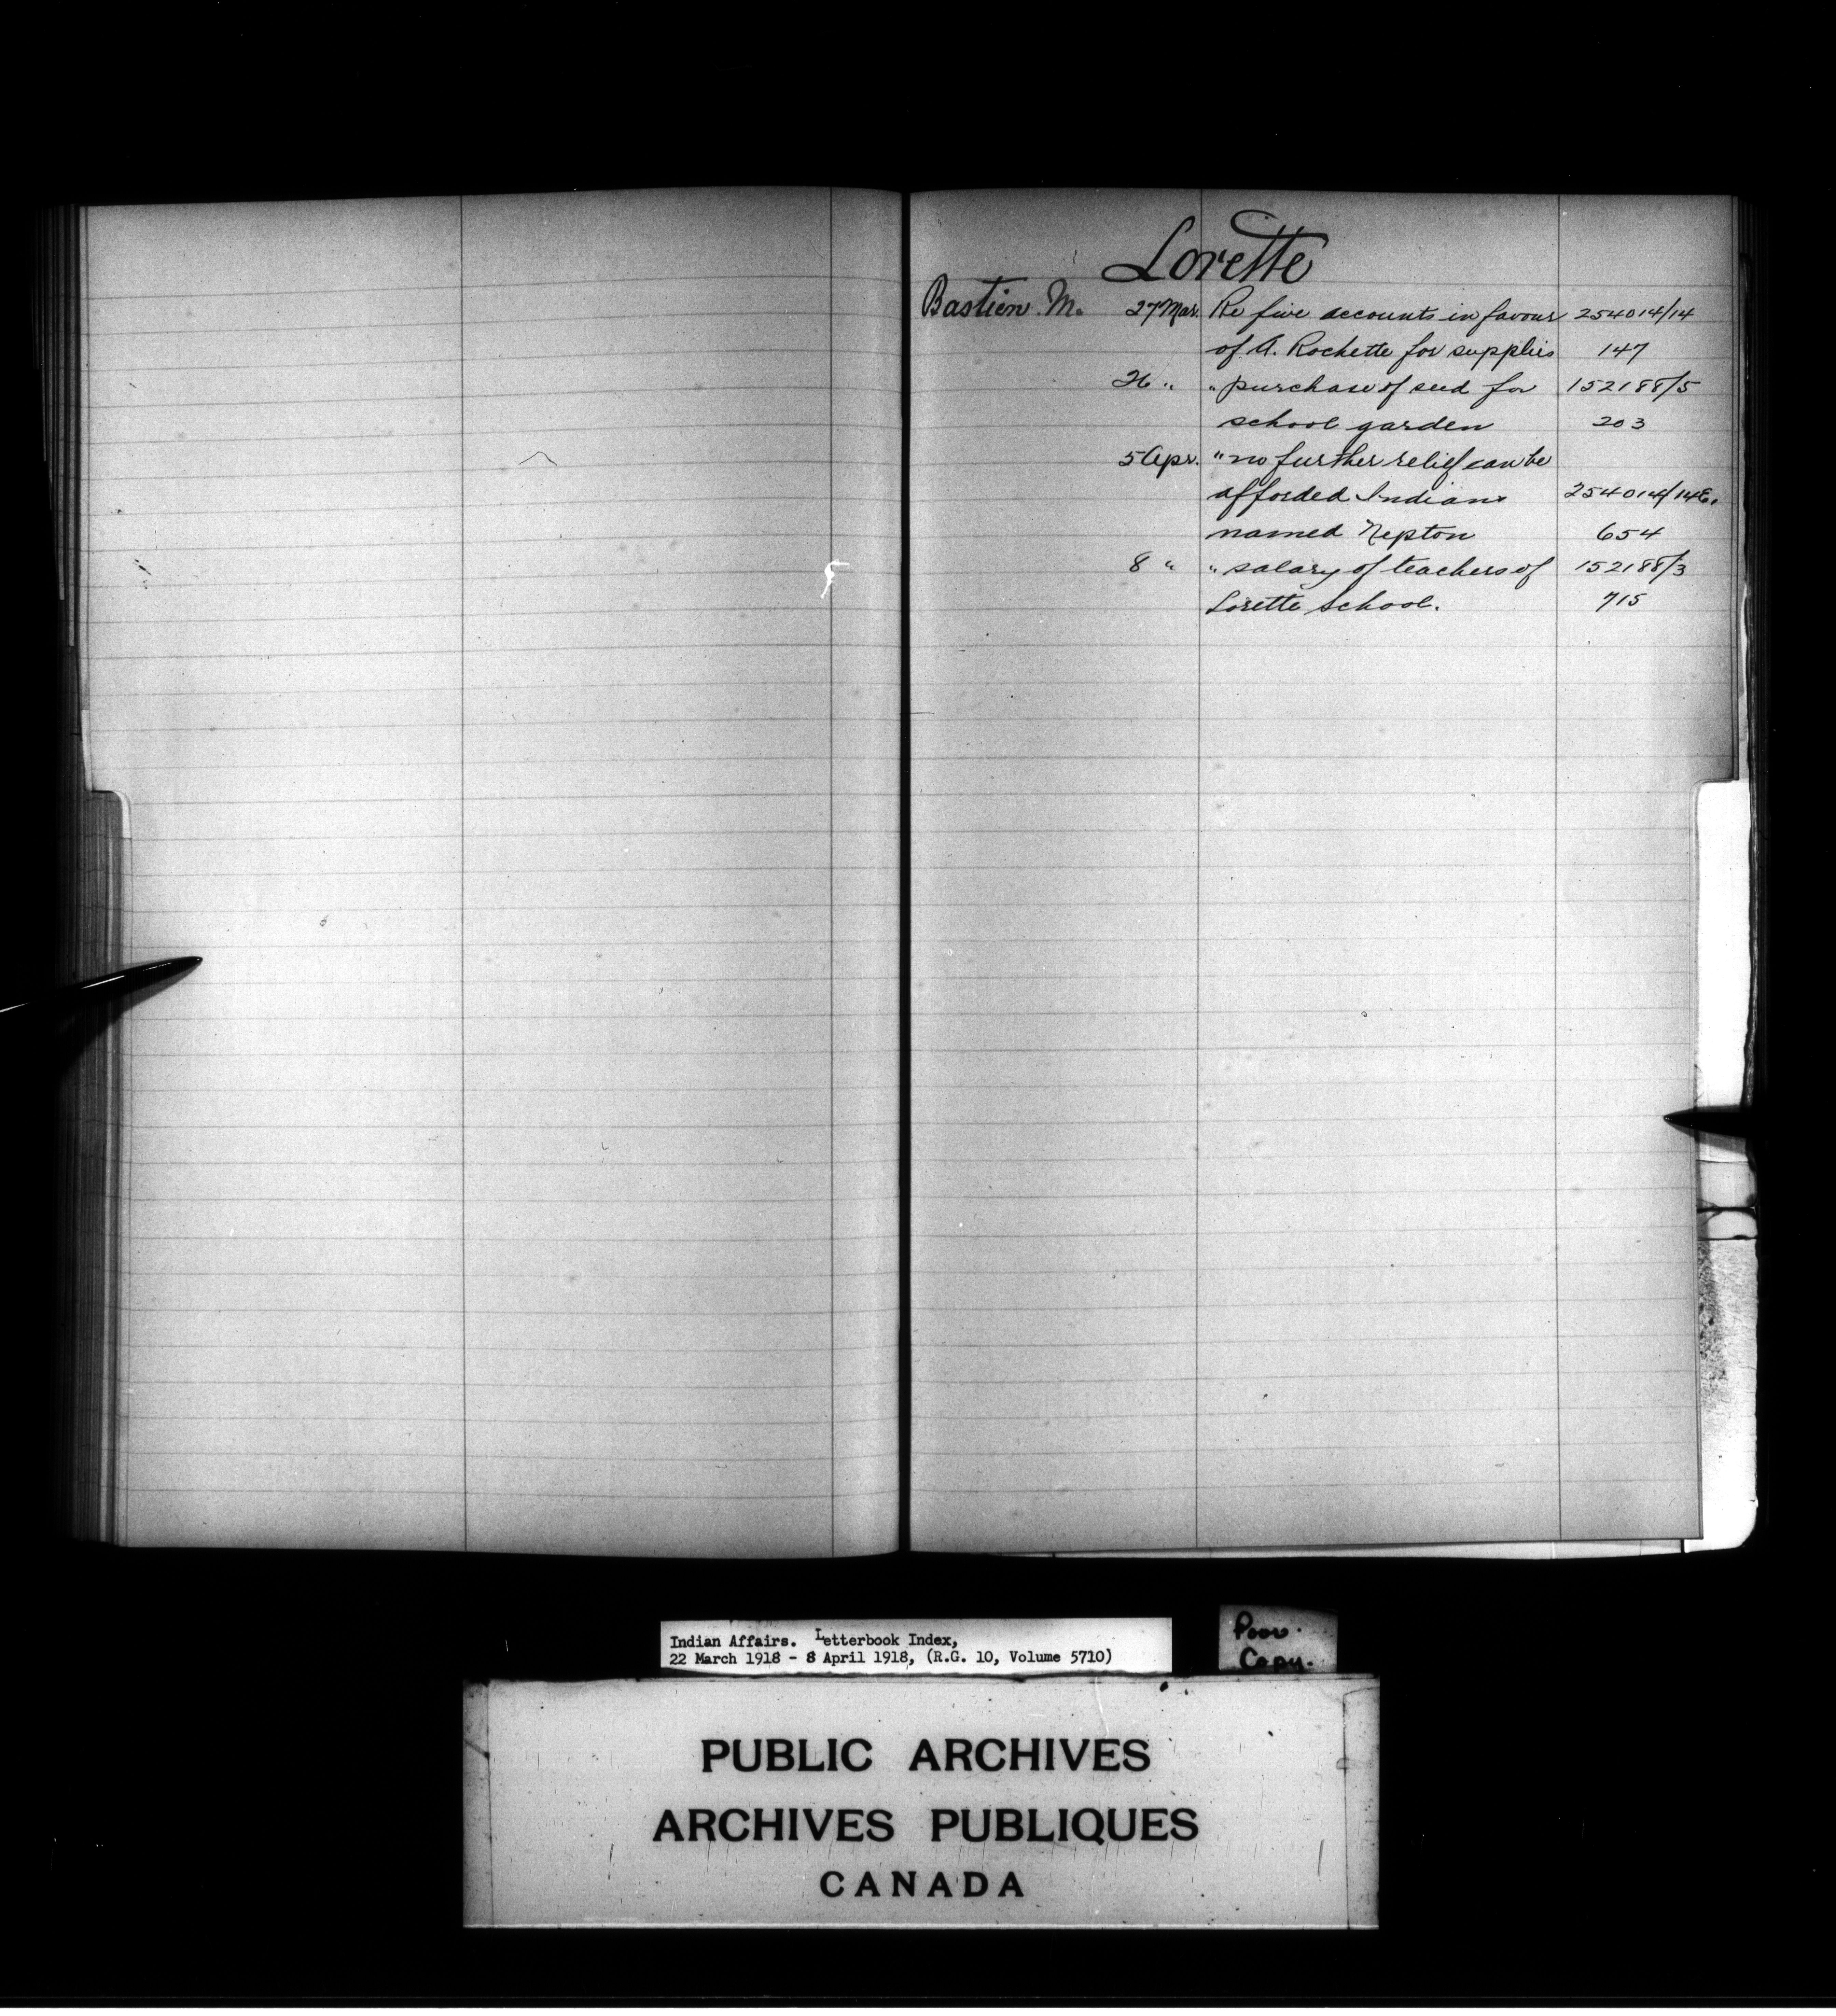 Lorette
Bastien M. 27 Mar. Re five accounts in favour 254014/14
of A. Rochette for supplies 147
26 " " purchase of seed for 152188/5
school garden 203
5 Apr. " no further relief can be
afforded Indians 254014/14E.
named Nepton 654
8 " " salary of teachers of 152188/3
Lorette School. 715
Indian Affairs. Letterbook Index,
22 March 1918 - 8 April 1918, (R.G. 10, Volume 5710)
Poor
Copy.
PUBLIC ARCHIVES
ARCHIVES PUBLIQUES
CANADA